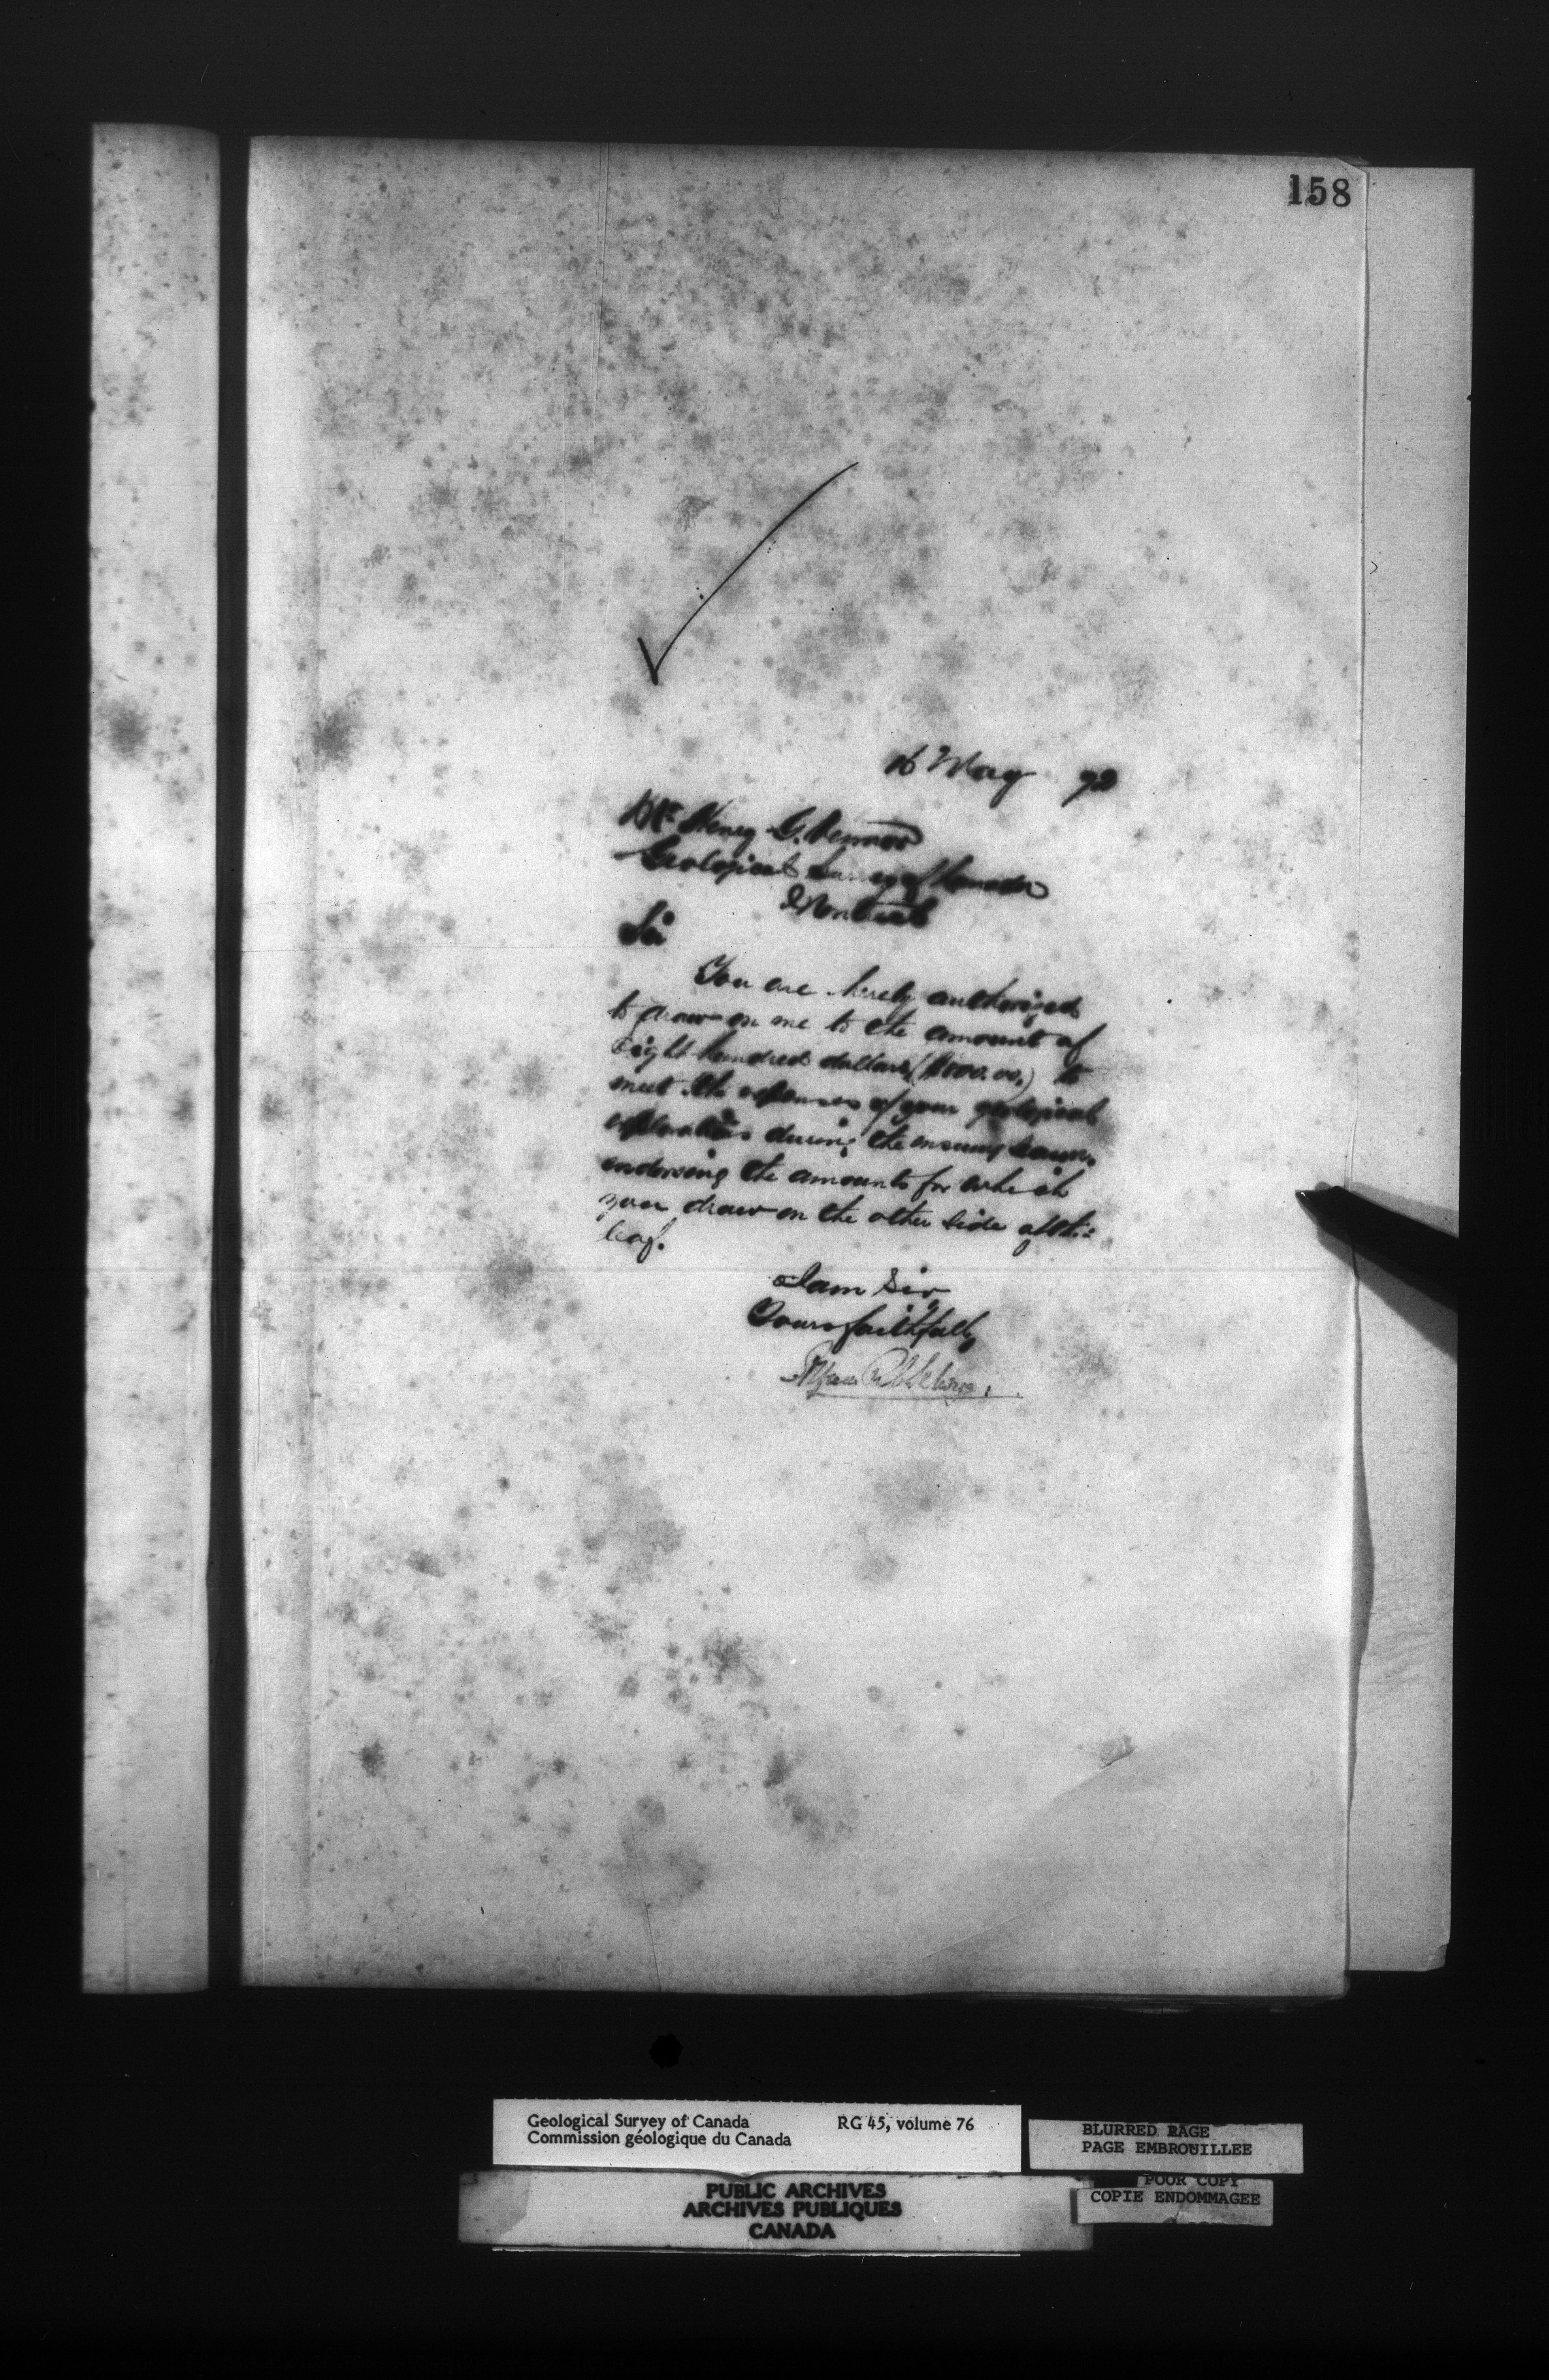 158
16 May 72
Mr Henry G. Vennor
Geological Survey of Canada
Montreal
Sir
You are hereby authorized
to draw on me to the amount of
Eight hundred dollars to
meet the expenses of your geological
explorations during the ensuing season,
endorsing the amounts for which
you draw on the other side of this
leaf.
I am Sir
Yours faithfully
Geological Survey of Canada RG 45, volume 76
Commission géologique du Canada
BLURRED PAGE
PAGE EMBROUILLEE
POOR COPY
COPIE ENDOMMAGEE
PUBLIC ARCHIVES
ARCHIVES PUBLIQUES
CANADA